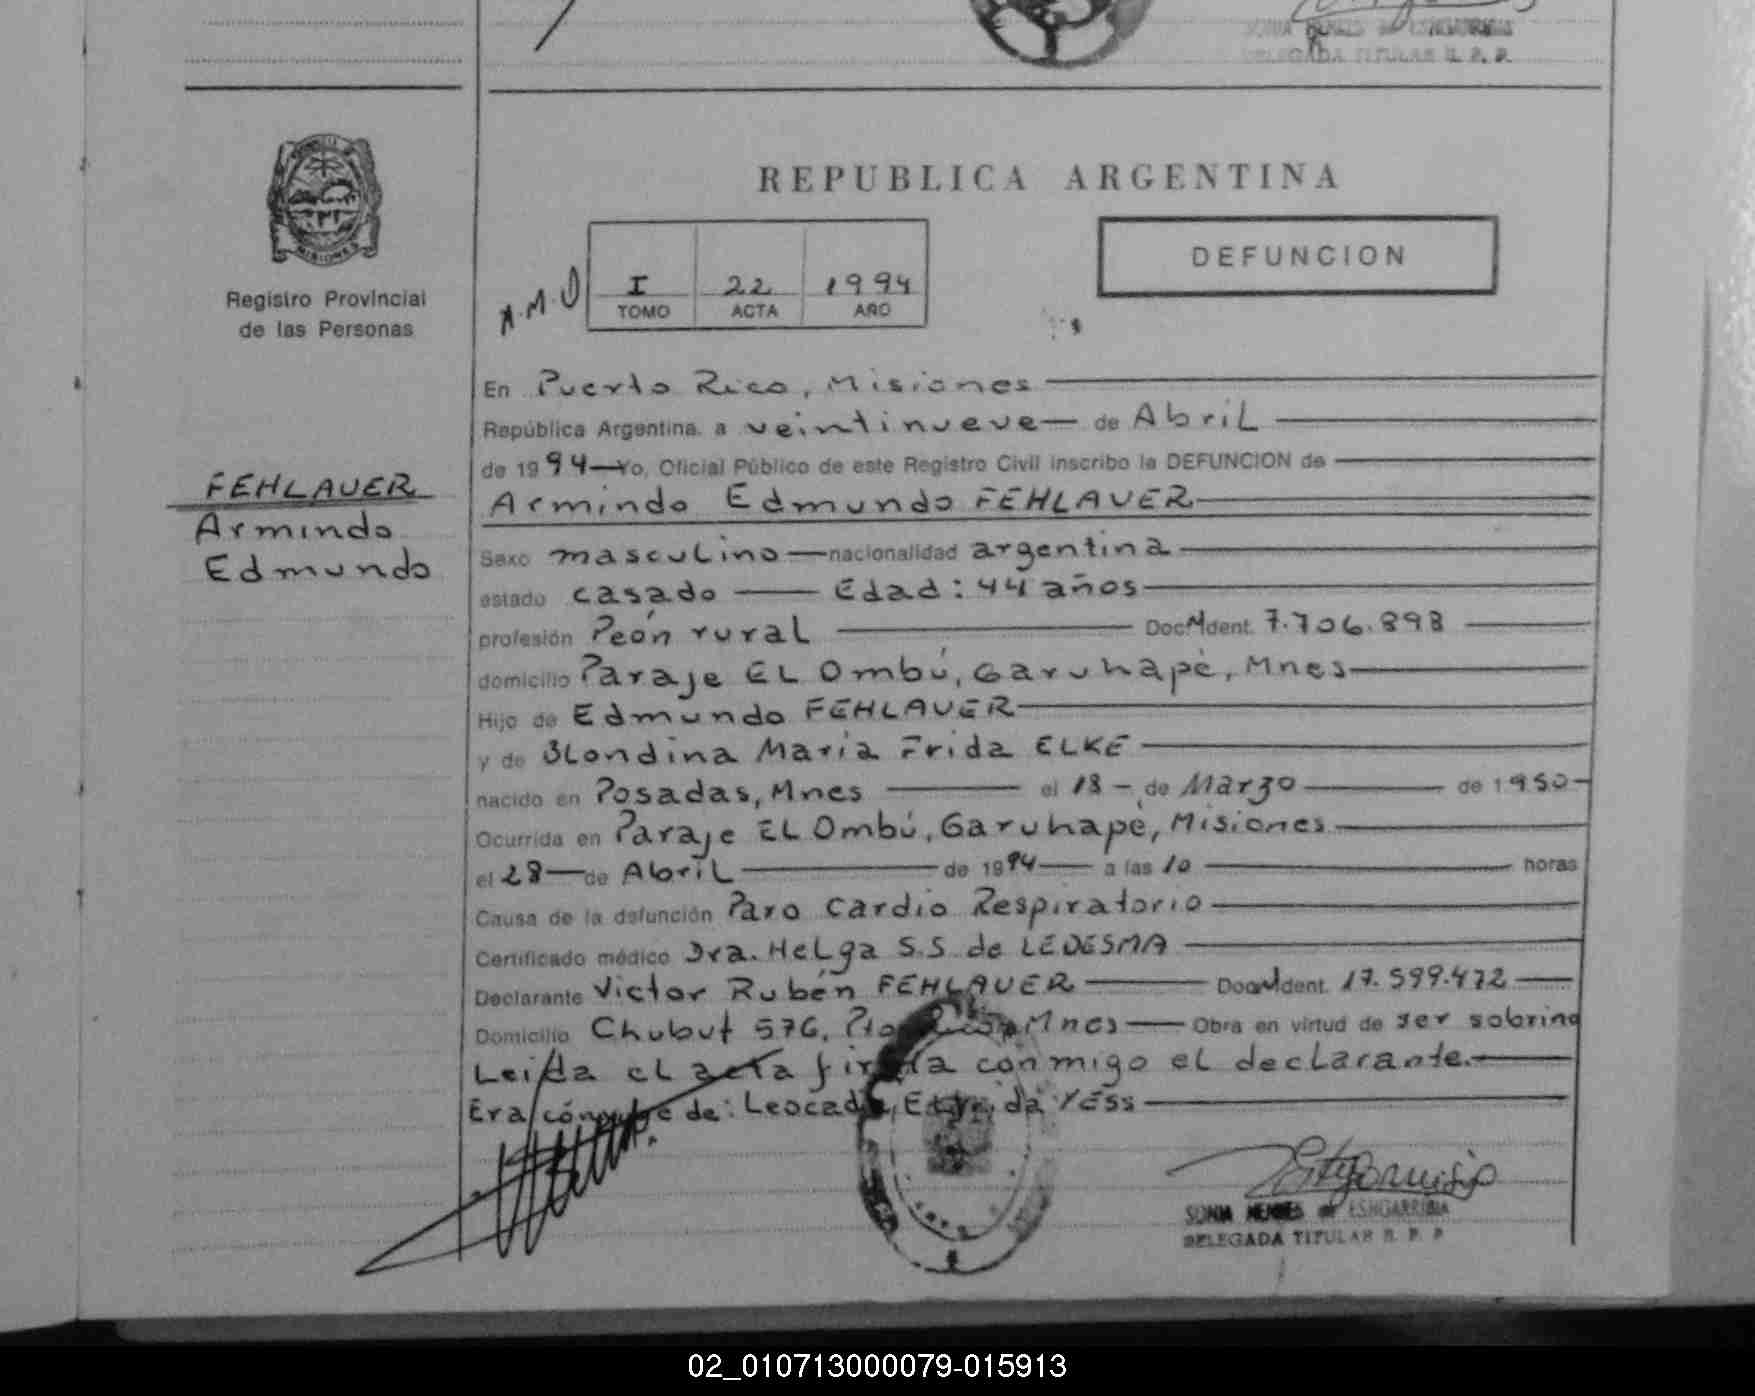 DELEGADA TITULAR R. P. P.
REPUBLICA ARGENTINA
DEFUNCION
MISIONES
Registro Provincial
de las Personas
A.M.D
I 22 1994
TOMO ACTA AÑO
FEHLAUER
Armindo
Edmundo
En Puerto Rico, Misiones
República Argentina. a veintinueve de Abril
de 1994 Yo, Oficial Público de este Registro Civil inscribo la DEFUNCION de
Armindo Edmundo FEHLAUER
Sexo masculino nacionalidad argentina
estado casado Edad: 44 años
profesión Peón rural Doc. Ident. 7.706.898
domicilio Paraje EL Ombú, Garuhapé, Mnes
Hijo de Edmundo FEHLAUER
y de Blondina María Frida ELKE
nacido en Posadas, Mnes el 18 - de Marzo de 1950-
Ocurrida en Paraje EL Ombú, Garuhapé, Misiones
el 28 de Abril de 1994 a las 10 horas
Causa de la defunción Paro Cardio Respiratorio
Certificado médico Dra. Helga S.S. de LEDESMA
Declarante Victor Rubén FEHLAUER Doc. Ident. 17.599.472
Domicilio Chubut 576, Pto Rico, Mnes Obra en virtud de ser sobrino
Leída el acta firma conmigo el declarante.
Era cónyuge de: Leocada YESS
SONIA de ESHGARRIBIA
DELEGADA TITULAR R. P. P.
02_010713000079-015913